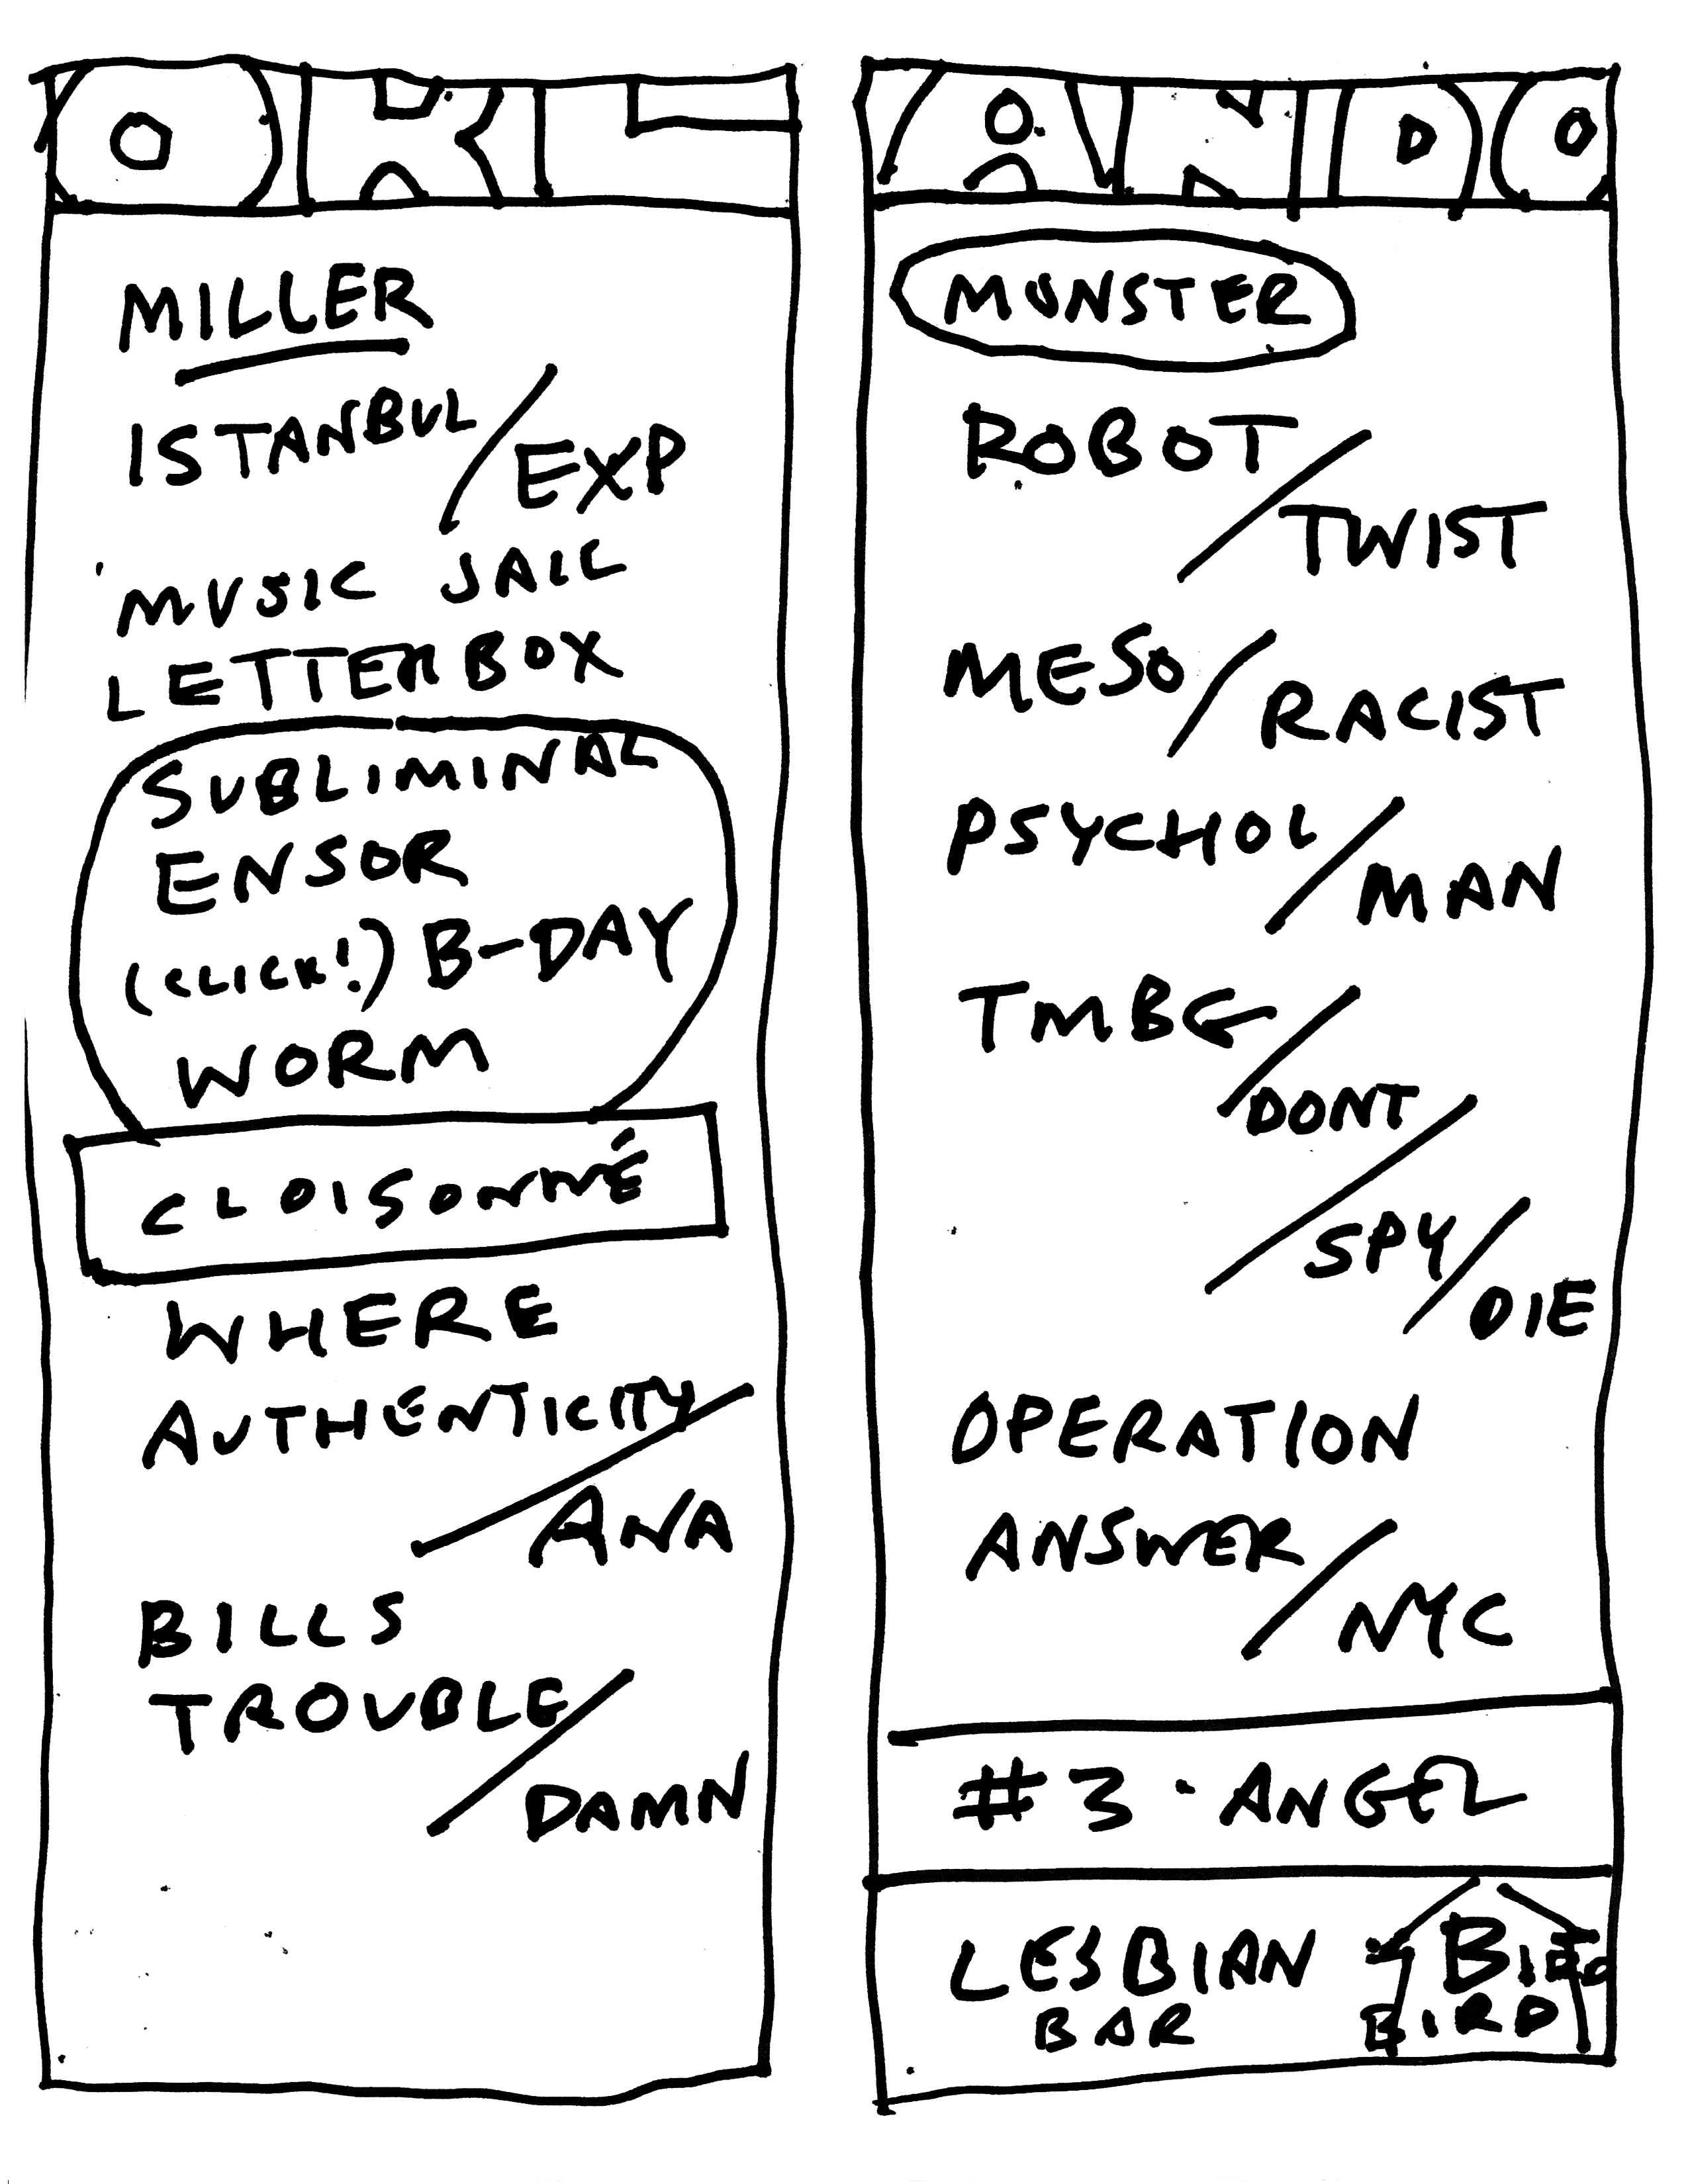 ORL
MILLER
ISTANBUL/EXP
MUSIC JAIL
LETTERBOX
SUBLIMINAL
ENSOR
(CLICK!) B-DAY
WORM
CLOISONNÉ
WHERE
AUTHENTICITY
/ANA
BILLS
TROUBLE/
DAMN
ANDO
MONSTER
ROBOT
/TWIST
MESO/RACIST
PSYCHOL/MAN
TMBG
/DONT
/SPY/DIE
OPERATION
ANSWER
/NYC
#3 · ANGEL
LESBIAN
BAR
BIRD